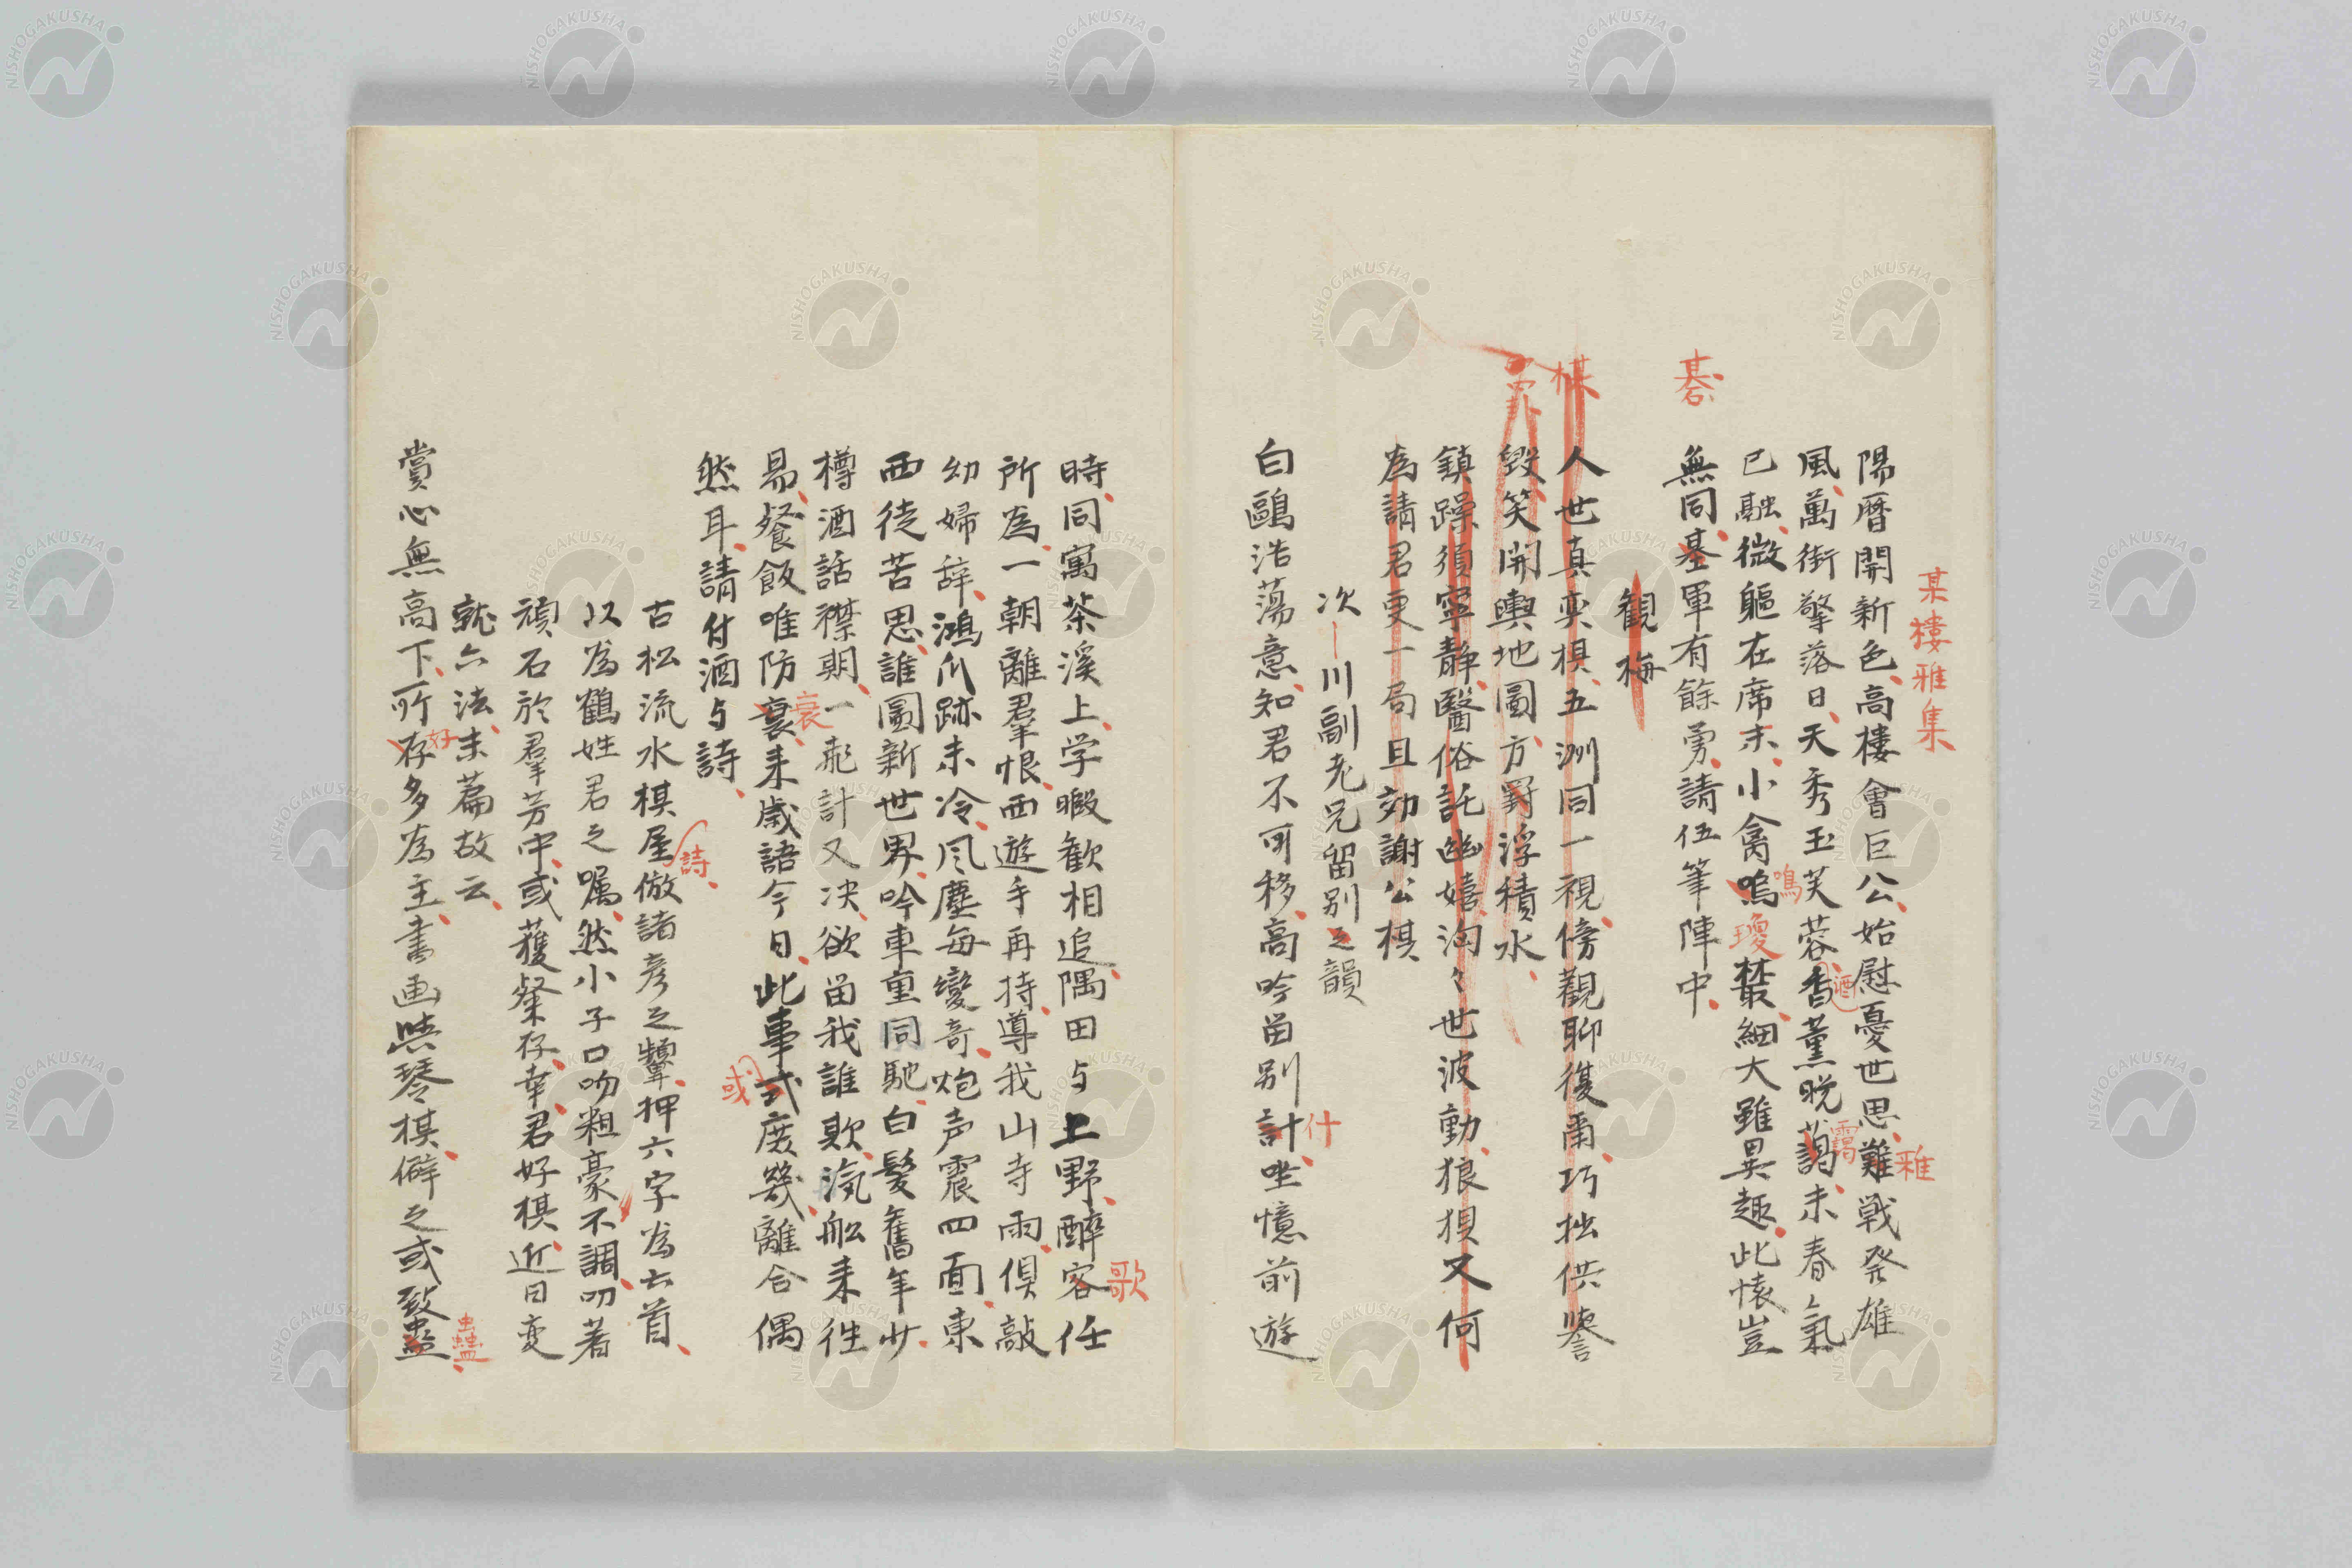 某樓雅集
陽暦開新色高樓會巨公始慰憂世思難戦発雄
雅
風萬街擎落日天秀玉芙蓉香薫晩藹未春氣
酒
靄
已融微軀在席末小禽鳴叢細大雖異趣此懐豈
鳴
瓊
無同基軍有餘勇請伍筆陣中
碁
観梅
人世真奕棋五洲同一視傍觀聊復爾巧拙供譽
棋
毀笑開輿地圖方罫浮積水
罫
鎮躁須寧静醫俗託幽嬉淘々世波動狼狽又何
為請君更一局且効謝公棋
次川副老兄留別之韻
白鷗浩蕩意知君不可移高吟留別計坐憶前遊
什
時同寓茶溪上学暇歓相追隅田与上野酔客任
歌
所為一朝離羣恨西遊手再持導我山寺雨倶敲
幼婦辞鴻爪跡未冷風塵毎變奇炮声震四面東
西徒苦思誰圖新世界吟車重同馳白髪舊年少
樽酒話襟期一飛計又决欲留我誰欺汽舩来徃
易餐飯唯防衰来歳語今日此事式度幾離合偶
衰
或
然耳請付酒与詩
古松流水棋屋倣諸彦之顰押六字為六首
詩
以為鶴姓君之嘱然小子口吻粗豪不調叨著
頑石於羣芳中或獲粲存幸君好棋近日変
就六法未篇故云
賞心無高下所存多為主書画與琴棋僻之或致蠱
好
蠱
NISHOGAKUSHA